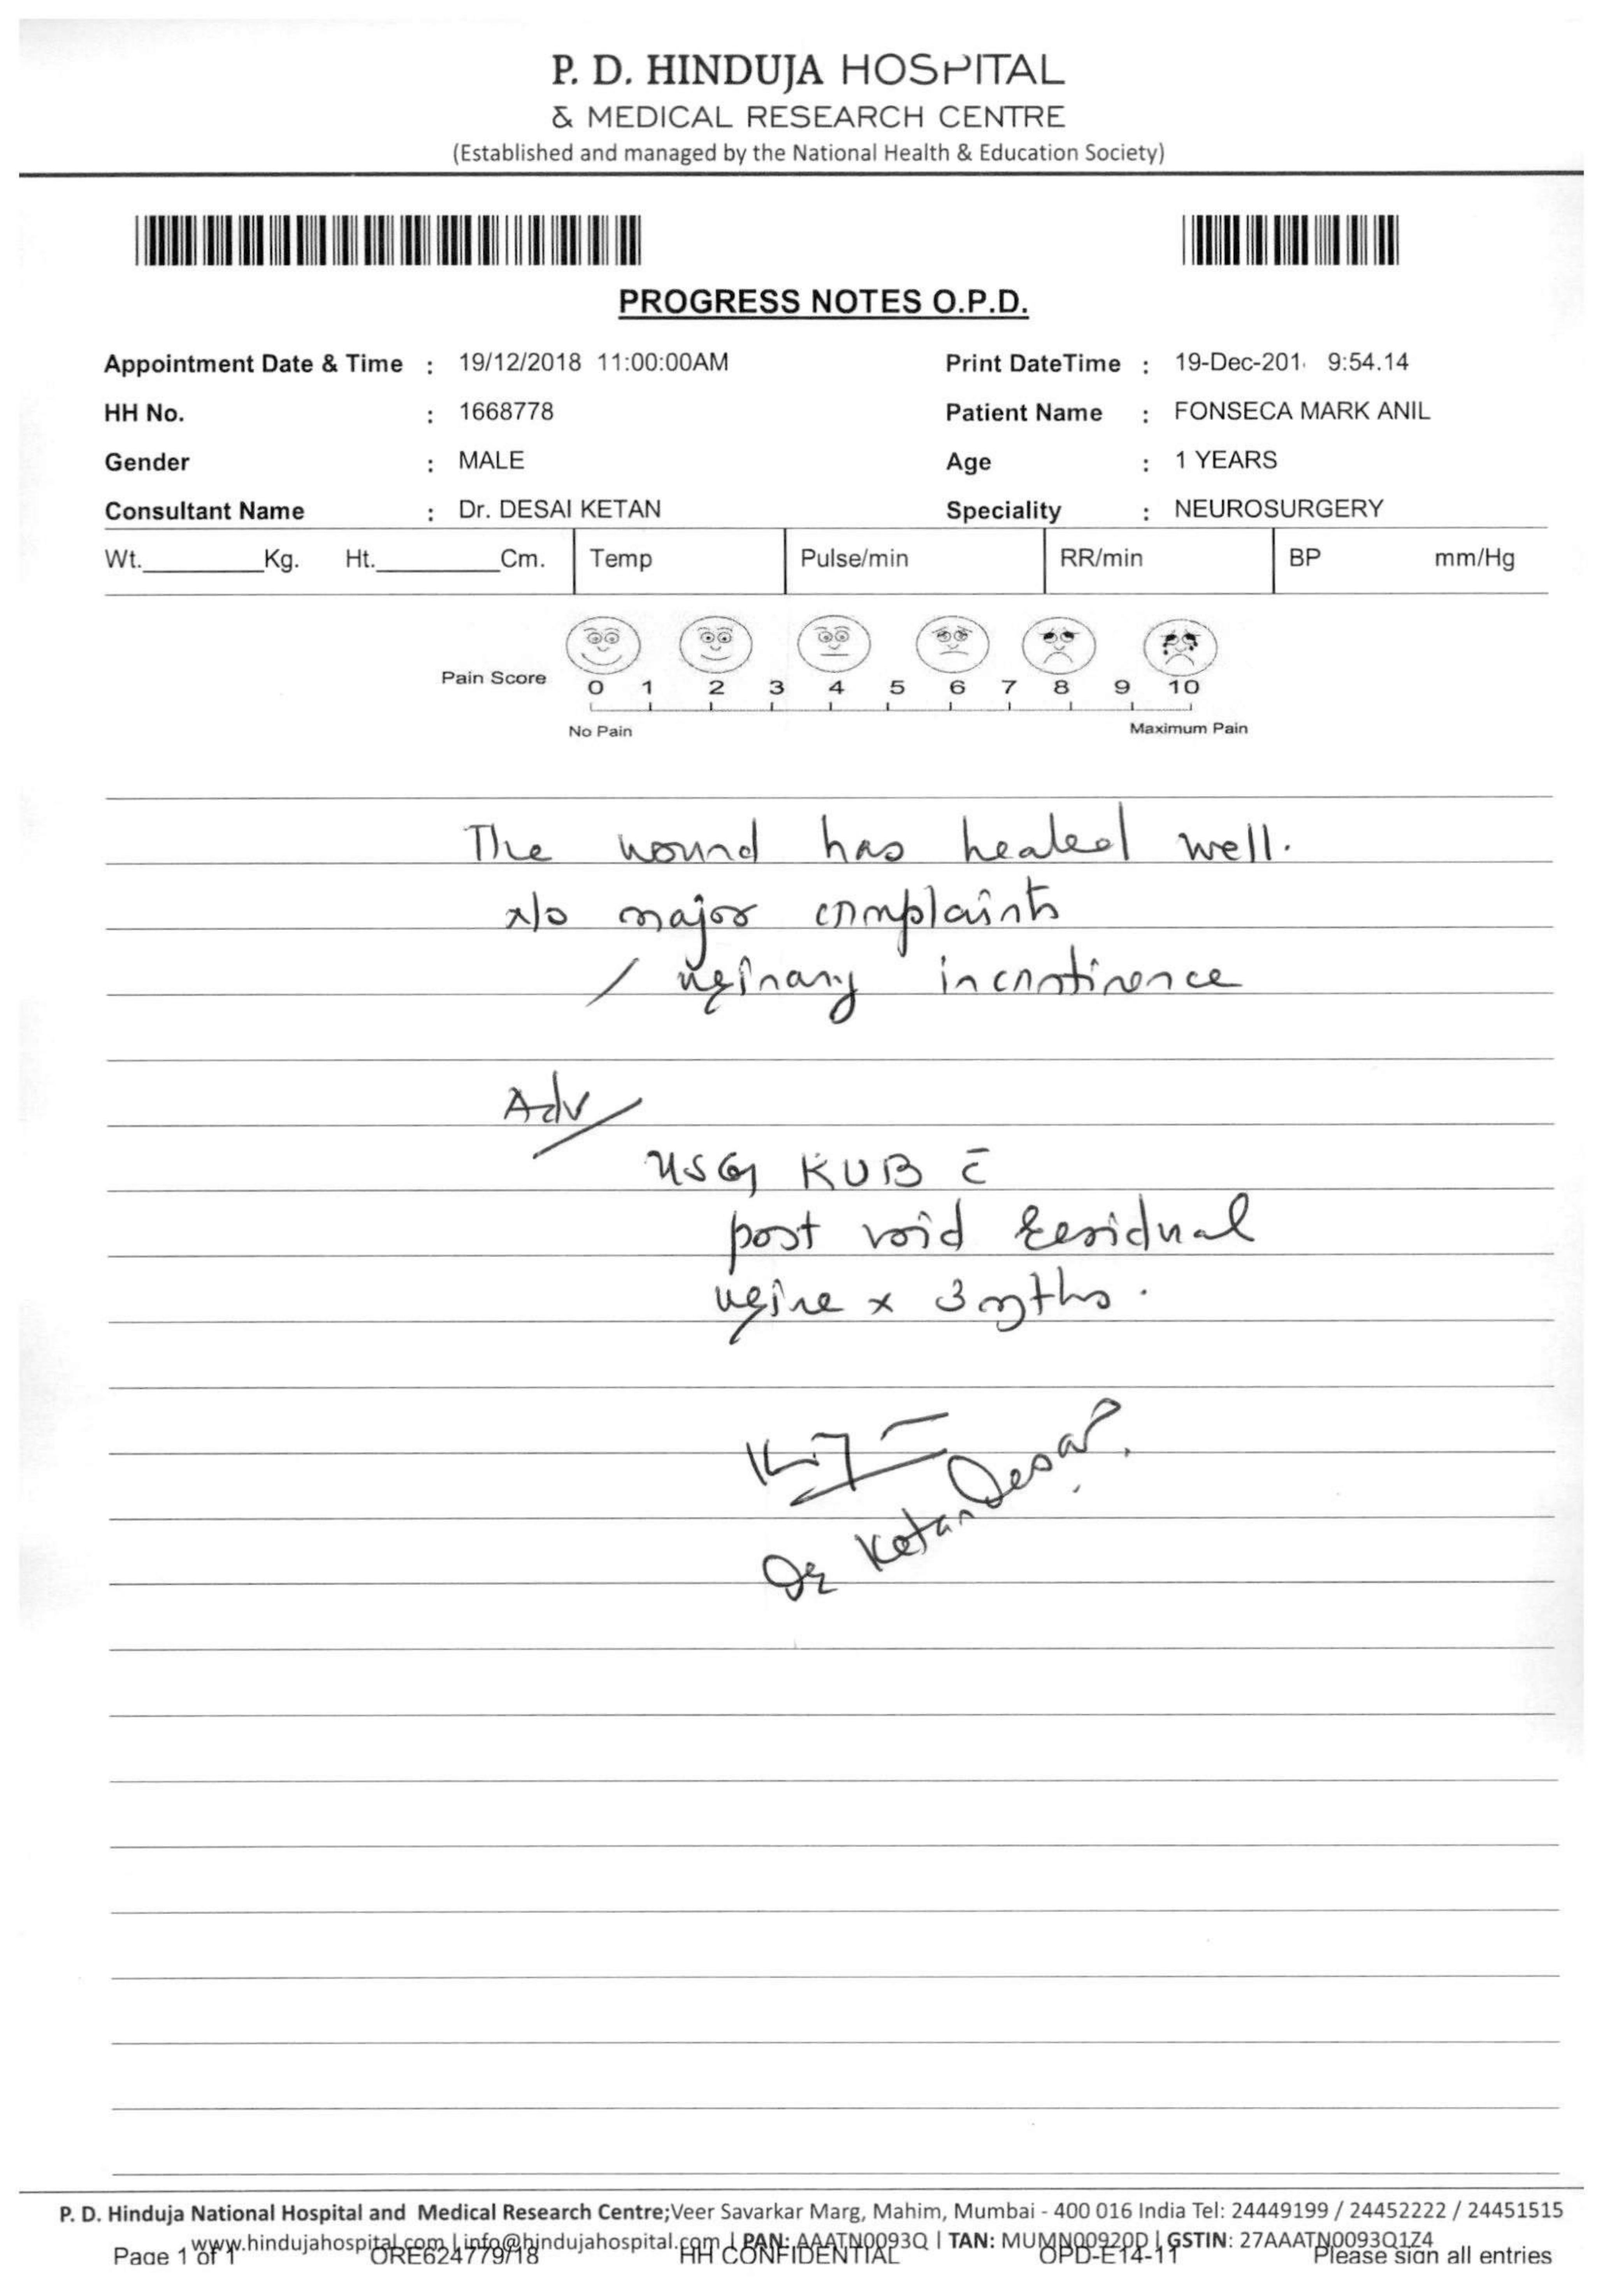 P. D. HINDUJA HOSPITAL
& MEDICAL RESEARCH CENTRE
(Established and managed by the National Health & Education Society)
PROGRESS NOTES O.P.D.
Appointment Date & Time : 19/12/2018 11:00:00AM Print DateTime : 19-Dec-201 9:54.14
HH No. : 1668778 Patient Name : FONSECA MARK ANIL
Gender : MALE Age : 1 YEARS
Consultant Name : Dr. DESAI KETAN Speciality : NEUROSURGERY
Wt. Kg. Ht. Cm. Temp Pulse/min RR/min BP mm/Hg
Pain Score 0 1 2 3 4 5 6 7 8 9 10
No Pain Maximum Pain
The wound has healed well.
n/o major complaints
/ urinary incontinence
Adv
USG KUB c̄
post void residual
urine x 3 mths.
Dr Ketan Desai
P. D. Hinduja National Hospital and Medical Research Centre;Veer Savarkar Marg, Mahim, Mumbai - 400 016 India Tel: 24449199 / 24452222 / 24451515
www.hindujahospital.com | info@hindujahospital.com | PAN: AAATN0093Q | TAN: MUMN00920D | GSTIN: 27AAATN0093Q1Z4
Page 1 of 1 ORE624779/18 HH CONFIDENTIAL OPD-E14-11 Please sign all entries